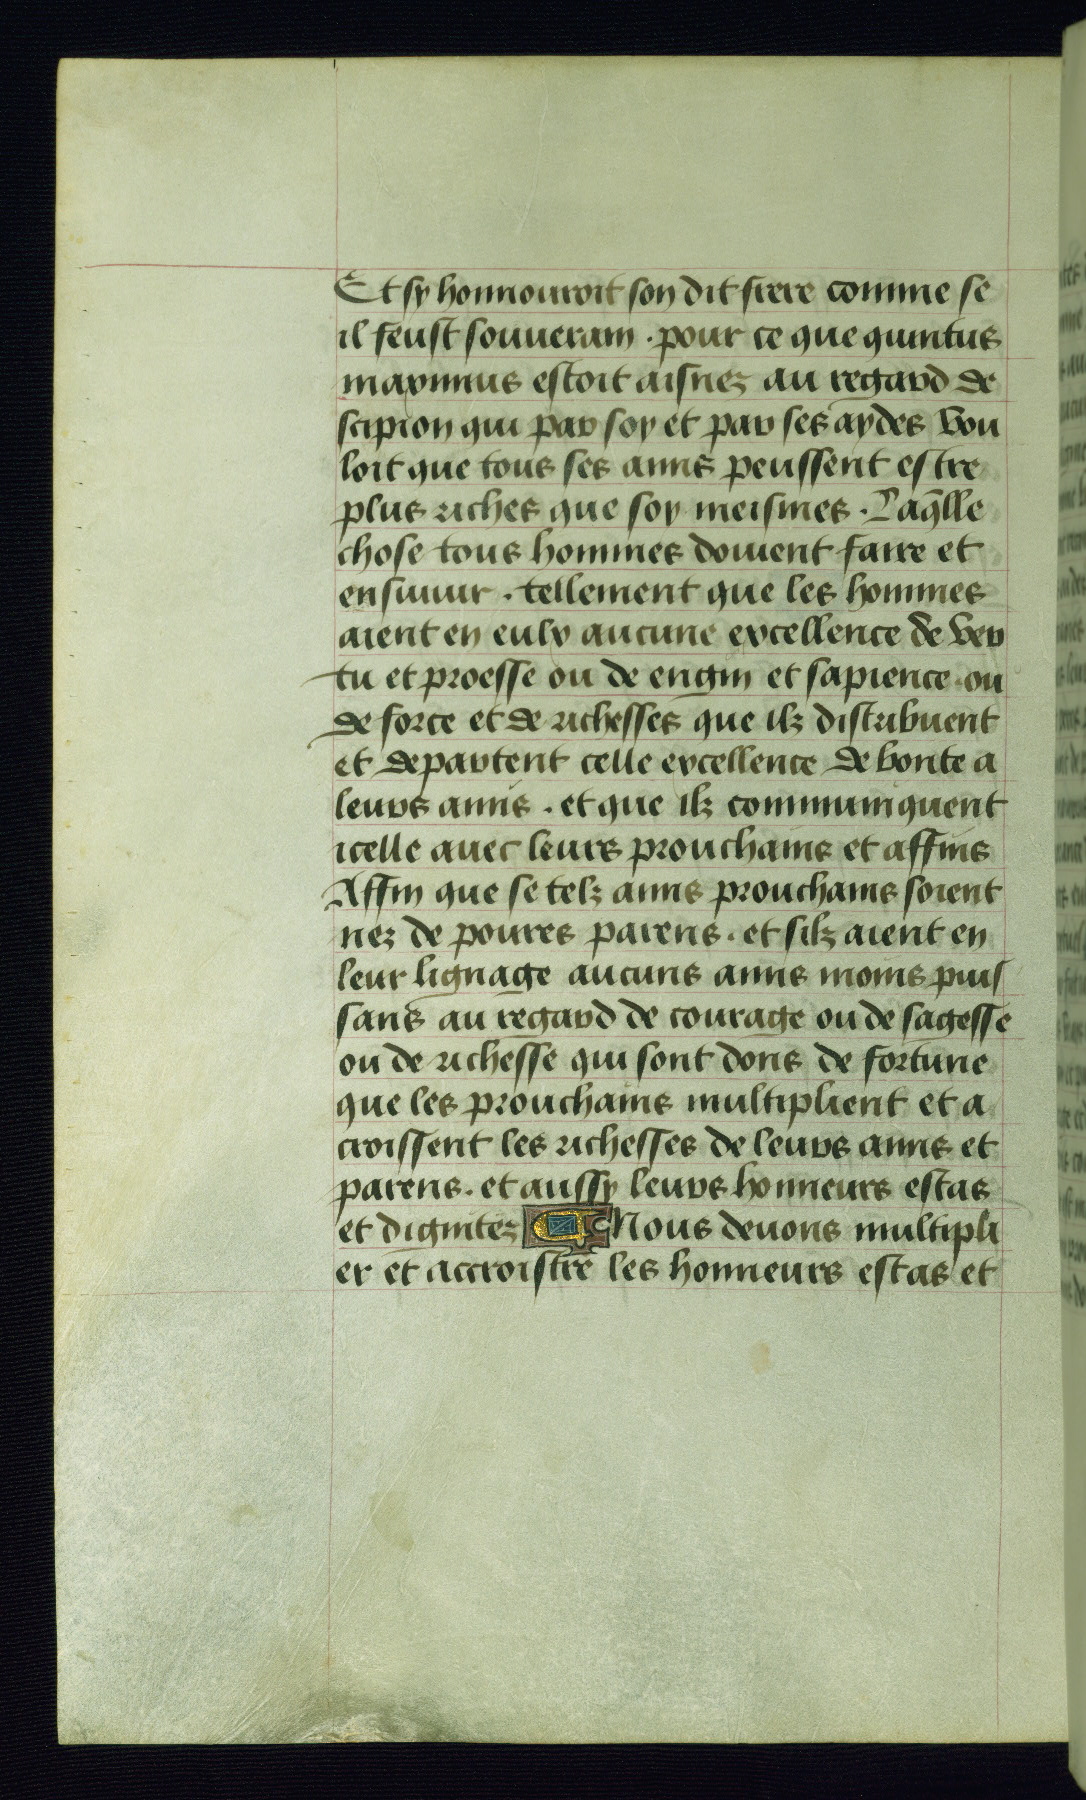 Et sy honnouroit son dit frere comme se
il feust souuerain . pour ce que quintus
maximus estoit aisnez au regard de
scipion qui par soy et par ses aydes vou
loit que tous ses amis peussent estre
plus riches que soy meismes . Laq̄lle
chose tous hommes doiuent faire et
ensuiuir . tellement que les hommes
aient en eulx aucune excellence de ver
tu et proesse ou de engin et sapience . ou
de force et de richesses que ilz distribuent
et departent celle excellence de bonte a
leurs amis . et que ilz communiquent
icelle auec leurs prouchains et affins
Affin que se telz amis prouchains soient
nez de poures parens . et silz aient en
leur lignage aucuns amis moins puis
sans au regard de courage ou de sagesse
ou de richesse qui sont dons de fortune
que les prouchains multiplient et a
croissent les richesses de leurs amis et
parens . et aussy leurs honneurs estas
et dignitez Nous deuons multipli
er et accroistre les honneurs estas et